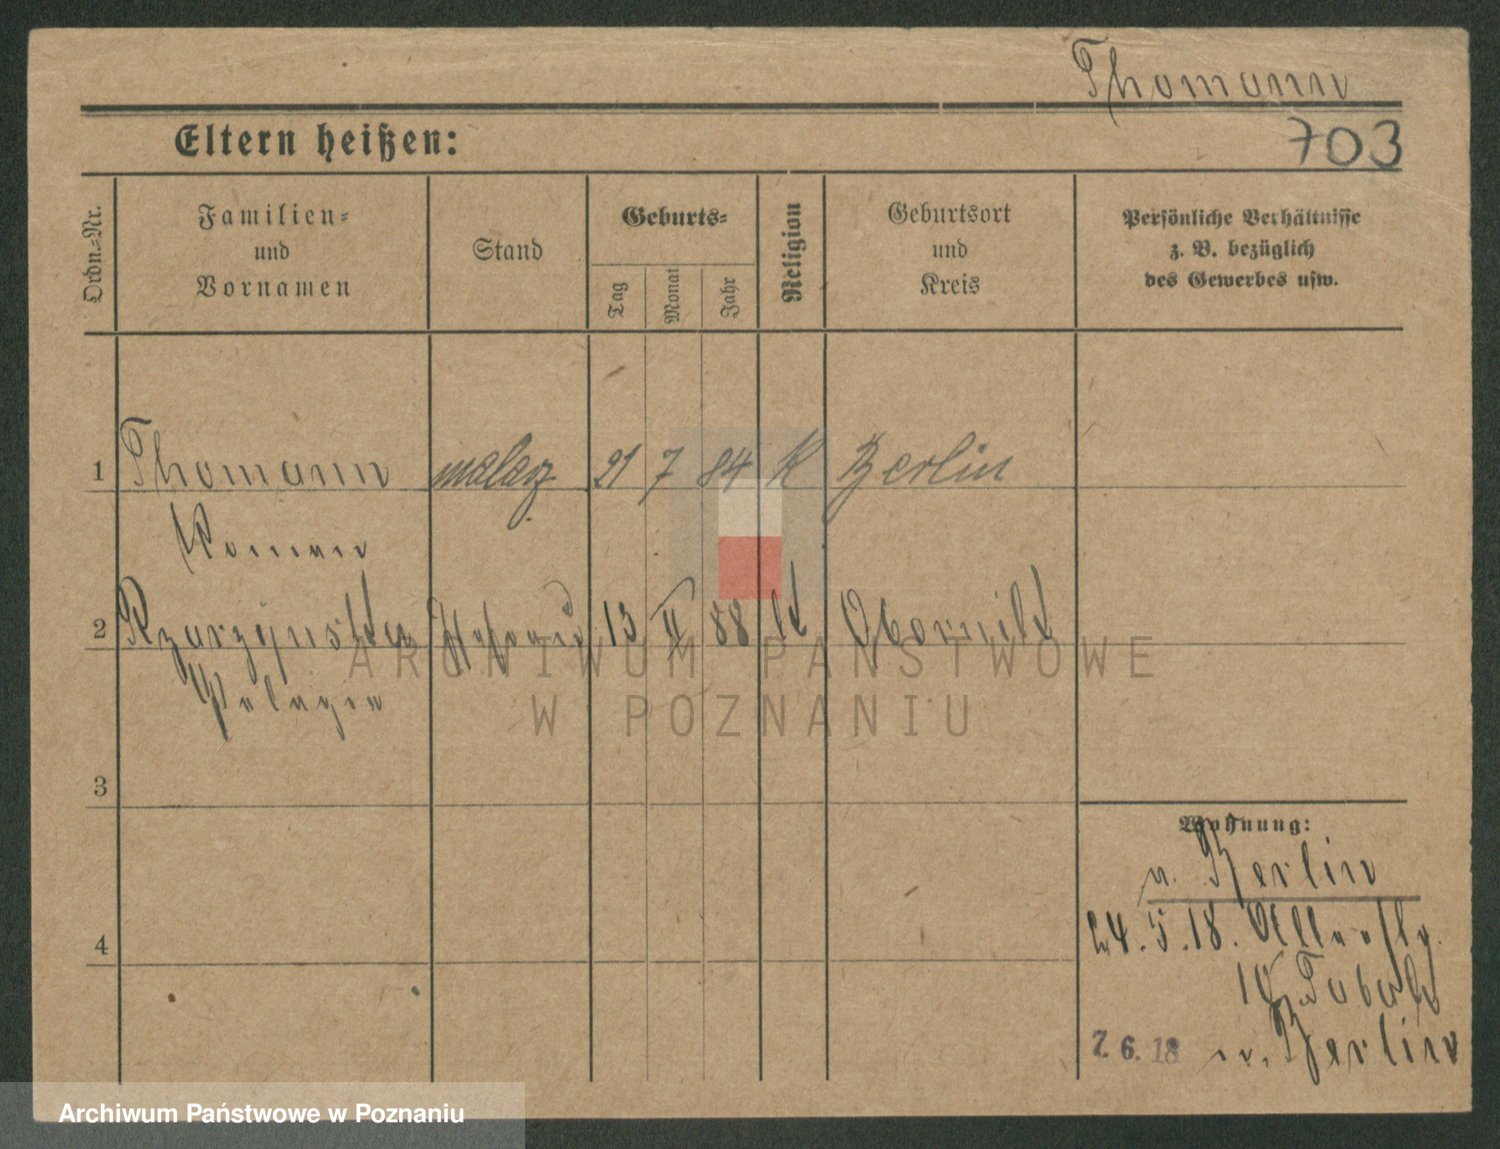 Thomann
Eltern heißen:
703
Ordn.-Nr.
Familien-
und
Vornamen
Stand
Geburts-
Tag
Monat
Jahr
Religion
Geburtsort
und
Kreis
Persönliche Verhältnisse
z. B. bezüglich
des Gewerbes usw.
1 Thomann malarz 21 7 84 K Berlin
Roman
2 Rzarzynska 13 II 88 K Obornik
Pelagia
3
4
Wohnung:
n. Berlin
24.5.18.
10
7. 6. 18 n. Berlin
ARCHIWUM PAŃSTWOWE
W POZNANIU
Archiwum Państwowe w Poznaniu